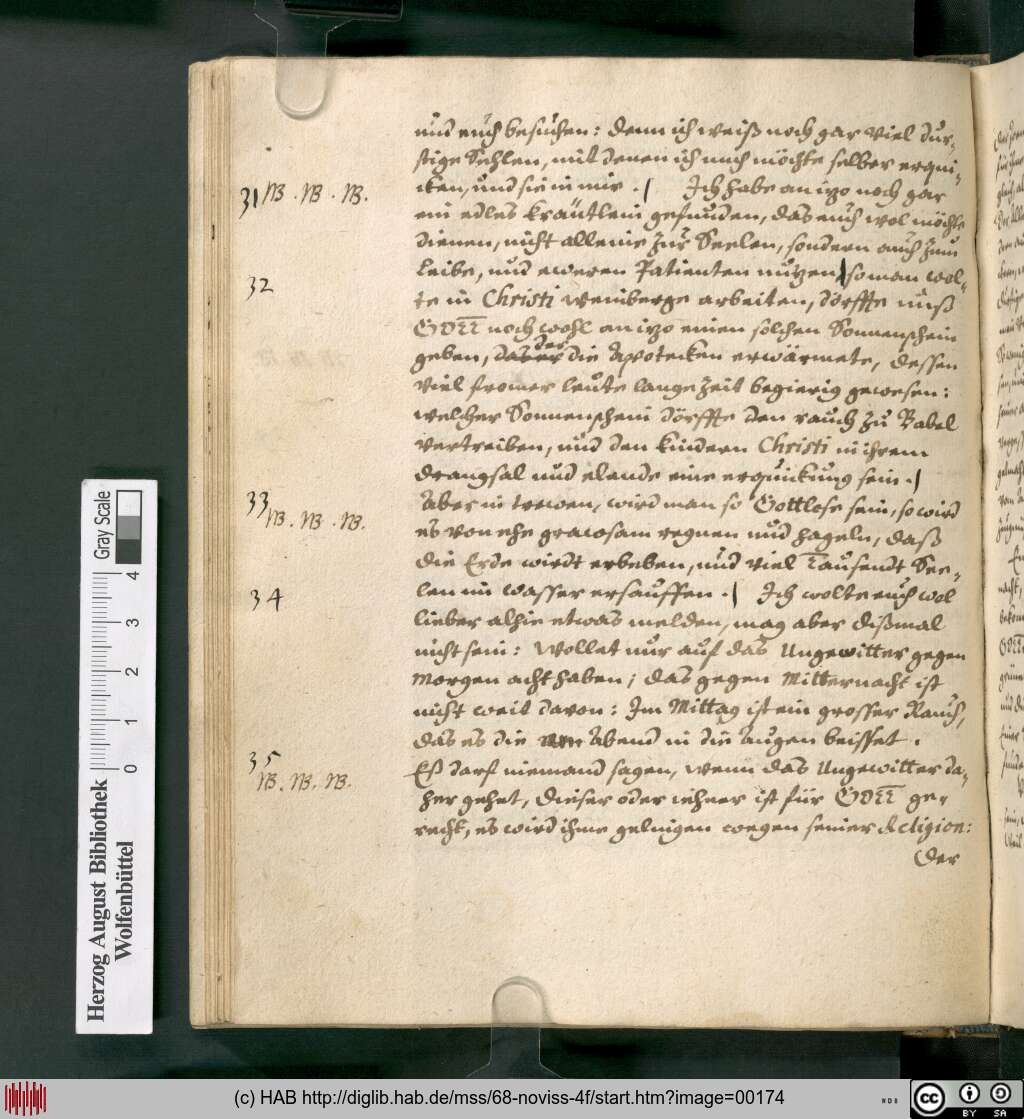 und euch besuchen: denn ich weiß noch gar viel dur-
stige Sehlen, mit denen ich mich möchte selber erqui-
31 NB. NB. NB. cken, und sie in mir. / Ich habe an izo noch gar
ein edles kräutlein gefunden, das euch wol möchte
dienen, nicht alleine zur Seelen, sondern auch zum
32 Leibe, und eweren Patienten nutzen / so man wol-
te in Christi weinberge arbeiten, dörffte unß
GOTT noch wohl an izo einen solchen Sonnenschein
geben, der die Apotecken erwärmete, dessen
viel fromer leute lange Zeit begierig gewesen:
welcher Sonnenschein dörffte den rauch zu Babel
vertreiben, und den kindern Christi in ihrem
drangsal und elende eine erquickung sein. /
33 NB. NB. NB. Aber in trewen, wird man so Gottlose sein, so wird
es von ehe grawsam regnen und hageln, daß
die Erde wirdt erbeben, und viel Tausendt See-
34 len im wasser ersauffen. / Ich wolte euch wol
lieber alhie etwas melden, mag aber dißmal
nicht sein: Wollet nur auf das Ungewitter gegen
Morgen acht haben; das gegen Mitternacht ist
nicht weit davon: Im Mittag ist ein grosser Rauch,
das es die Abend in die Augen beisset.
35 NB. NB. NB. Eß darf niemand sagen, wenn das Ungewitter da-
her gehet, dieser oder jehner ist für GOTT ge-
recht, es wird ihme gelingen wegen seiner Religion:
Der
Herzog August Bibliothek
Wolfenbüttel
0 1 2 3 4
Gray Scale
(c) HAB http://diglib.hab.de/mss/68-noviss-4f/start.htm?image=00174
cc BY SA